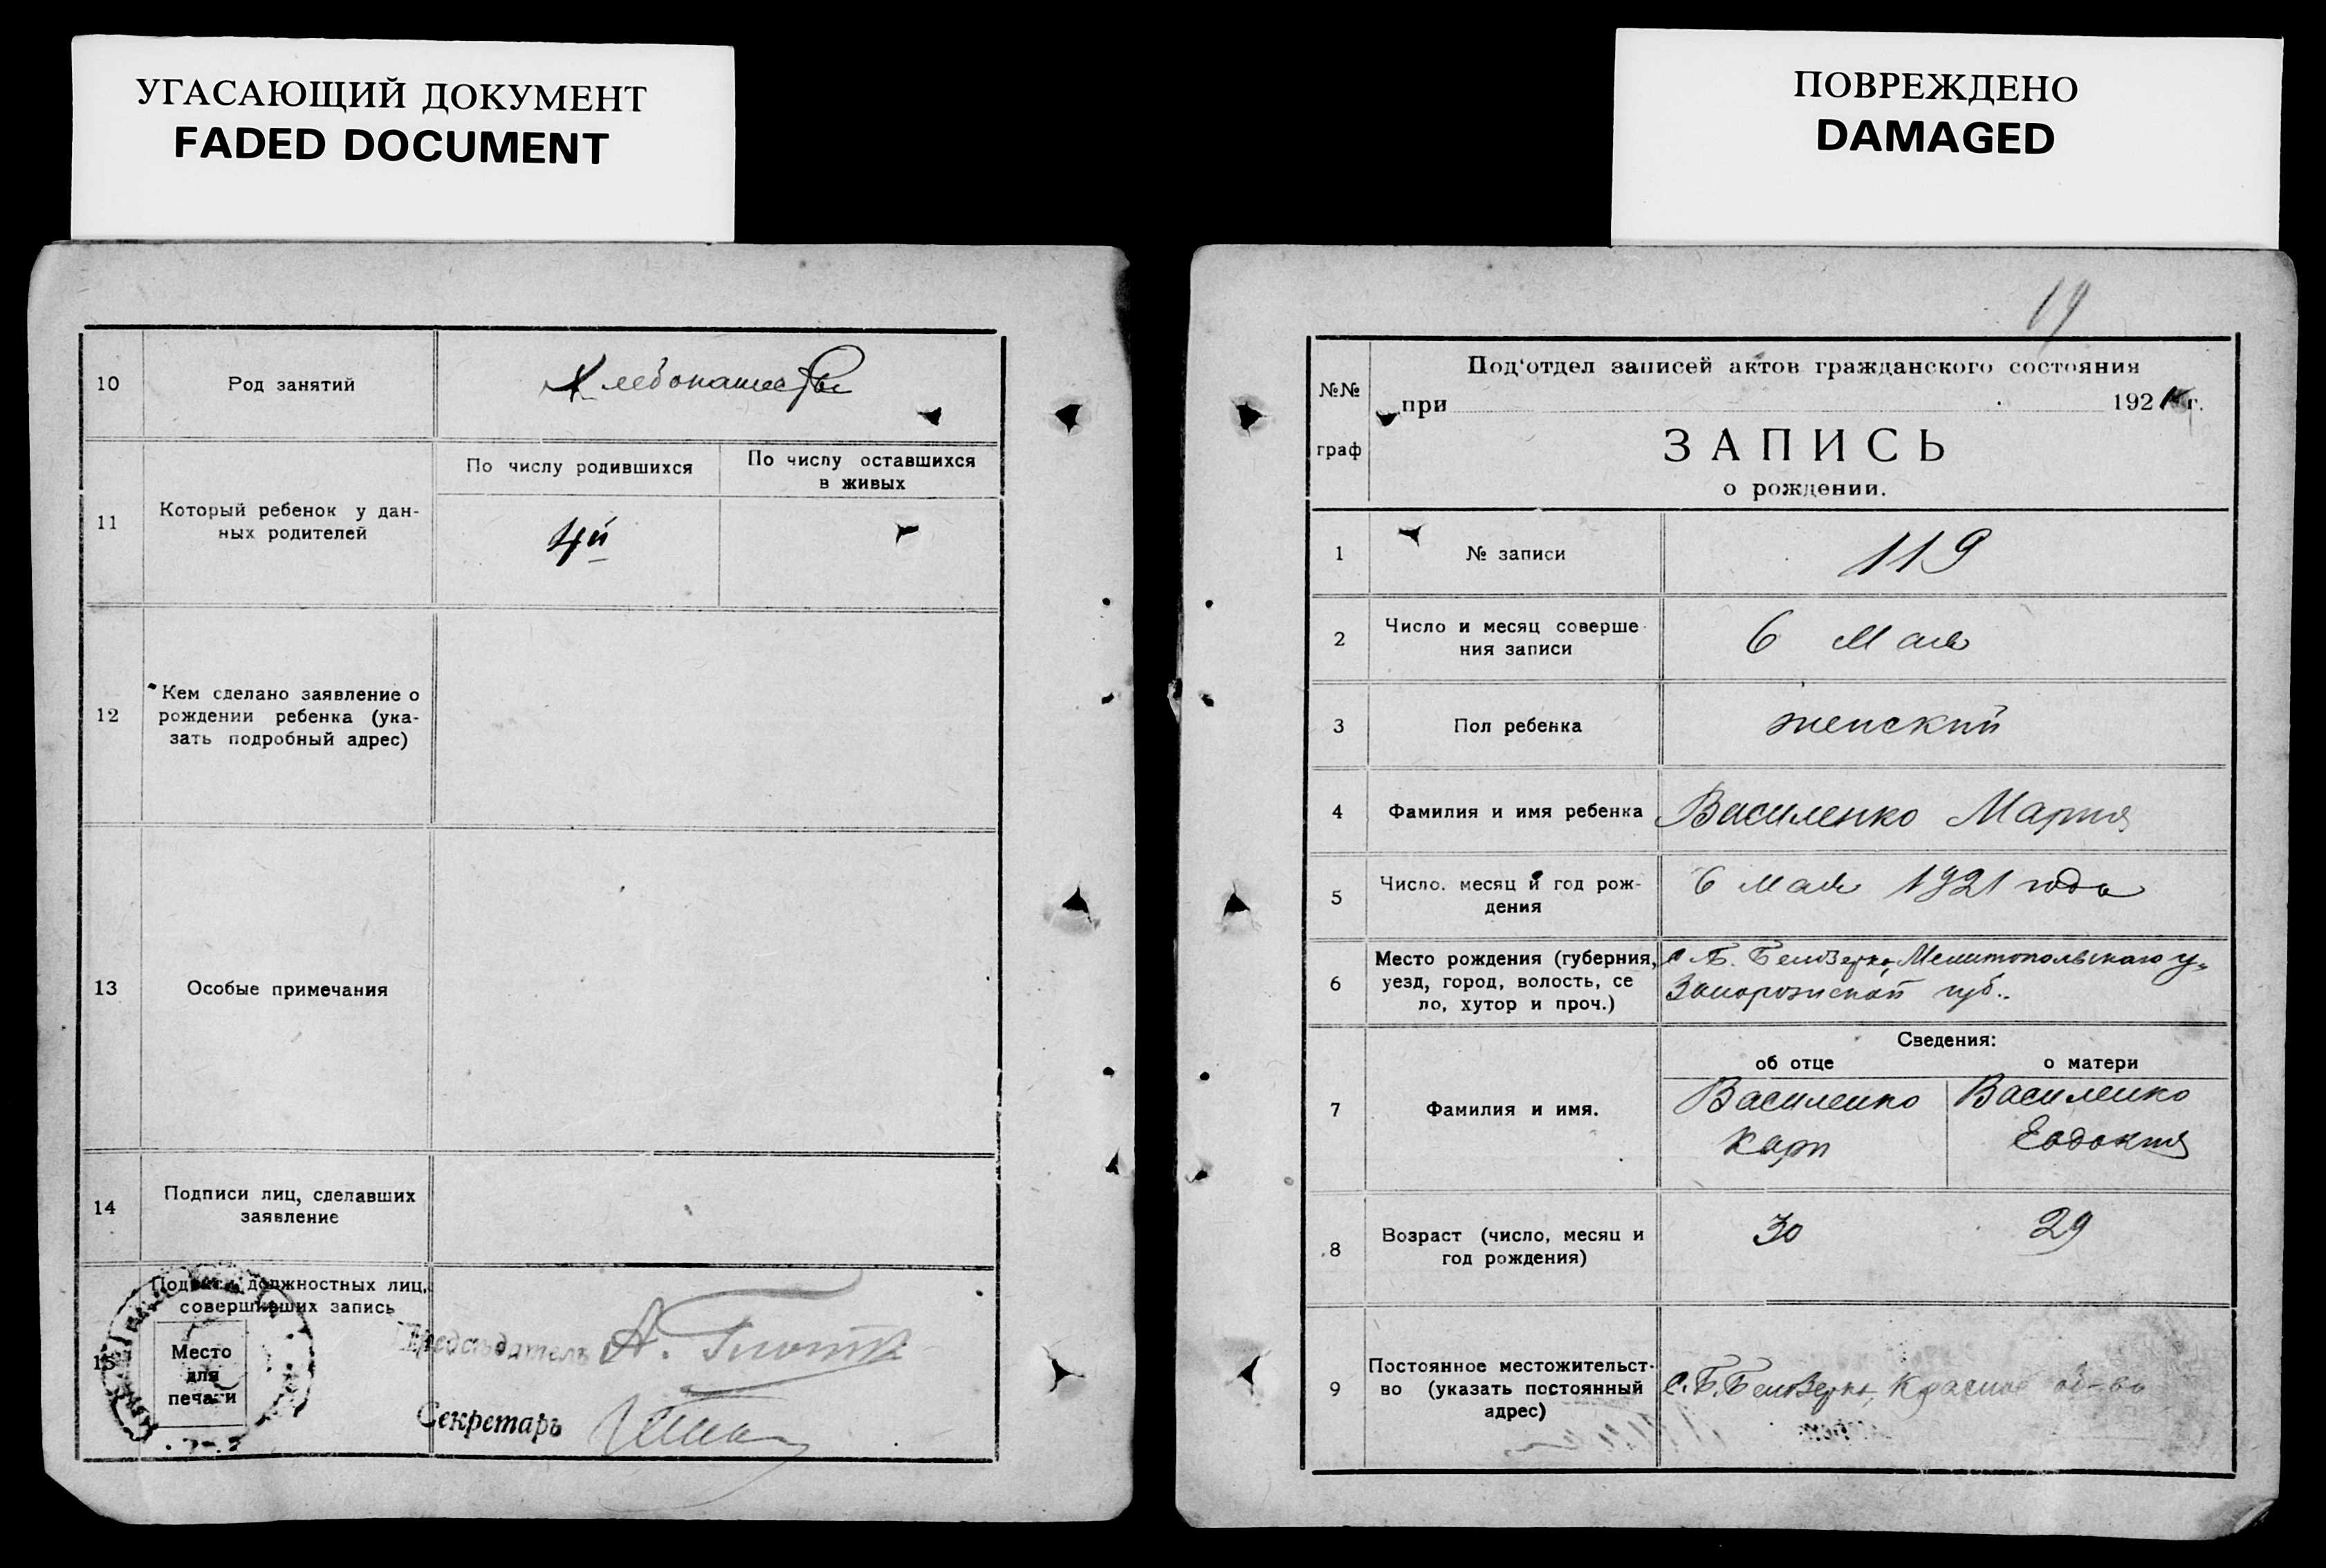 УГАСАЮЩИЙ ДОКУМЕНТ
FADED DOCUMENT
ПОВРЕЖДЕНО
DAMAGED
10
Род занятий
Хлебопашество
11
Который ребенок у дан-
ных родителей
По числу родившихся
По числу оставшихся
в живых
4й
12
Кем сделано заявление о
рождении ребенка (ука-
зать подробный адрес)
13
Особые примечания
14
Подписи лиц, сделавших
заявление
15
Подписи должностных лиц,
совершивших запись
Место
для
печати
Председатель А.
Секретарь
19
№№
граф
Под'отдел записей актов гражданского состояния
при 1921 г.
ЗАПИСЬ
о рождении.
1
№ записи
119
2
Число и месяц соверше-
ния записи
6 Мая
3
Пол ребенка
женский
4
Фамилия и имя ребенка
Василенко Мария
5
Число. месяц и год рож-
дения
6 Мая 1921 года
6
Место рождения (губерния,
уезд, город, волость, се
ло, хутор и проч.)
с. Б. Белозерка, Мелитопольскаго у.
Запорожской губ.
Сведения:
об отце
о матери
7
Фамилия и имя.
Василенко
Карп
Василенко
Евдокия
8
Возраст (число, месяц и
год рождения)
30
29
9
Постоянное местожительст-
во (указать постоянный
адрес)
с. Б. Белозерка, об-во